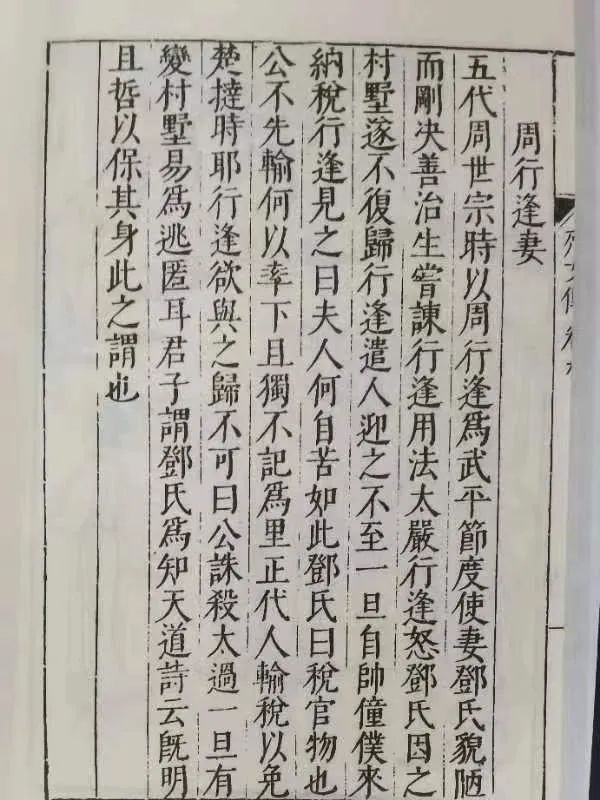 周行逢妻
五代周世宗時以周行逢爲武平節度使妻鄧氏貌陋
而剛决善治生嘗諫行逢用法太嚴行逢怒鄧氏因之
村墅遂不復歸行逢遣人迎之不至一旦自帥僮僕來
納稅行逢見之曰夫人何自苦如此鄧氏曰稅官物也
公不先輸何以率下且獨不記爲里正代人輸稅以免
楚撻時耶行逢欲與之歸不可曰公誅殺太過一旦有
變村墅易爲逃匿耳君子謂鄧氏爲知天道詩云旣明
且哲以保其身此之謂也